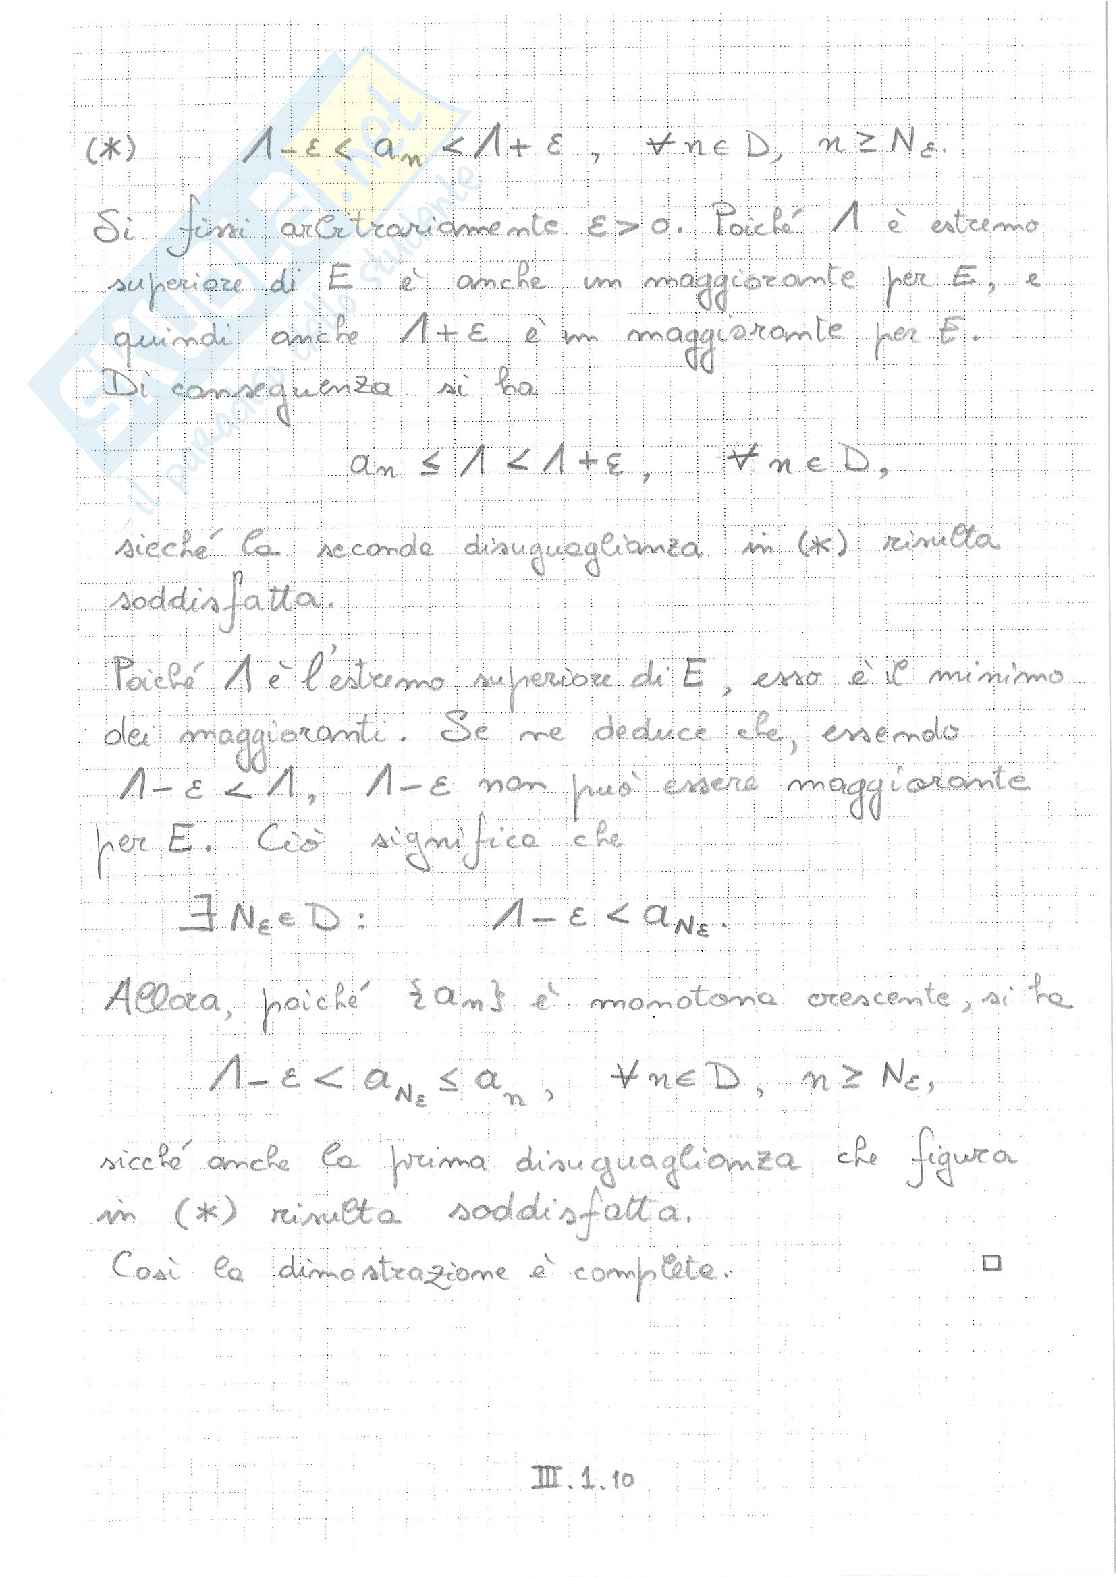 (*) Λ-ε < aₙ < Λ+ε , ∀n∈D, n ≥ Nε.
Si fissi arbitrariamente ε>0. Poiché Λ è estremo
superiore di E è anche un maggiorante per E, e
quindi anche Λ+ε è un maggiorante per E.
Di conseguenza si ha
aₙ ≤ Λ < Λ+ε, ∀n∈D,
sicché la seconda disuguaglianza in (*) risulta
soddisfatta.
Poiché Λ è l'estremo superiore di E, esso è il minimo
dei maggioranti. Se ne deduce che, essendo
Λ-ε < Λ, Λ-ε non può essere maggiorante
per E. Ciò significa che
∃ Nε∈D : Λ-ε < a_Nε.
Allora, poiché {aₙ} è monotona crescente, si ha
Λ-ε < a_Nε ≤ aₙ, ∀n∈D, n ≥ Nε,
sicché anche la prima disuguaglianza che figura
in (*) risulta soddisfatta.
Così la dimostrazione è completa. □
III.1.10
SKUOLA.net
il paradiso dello studente